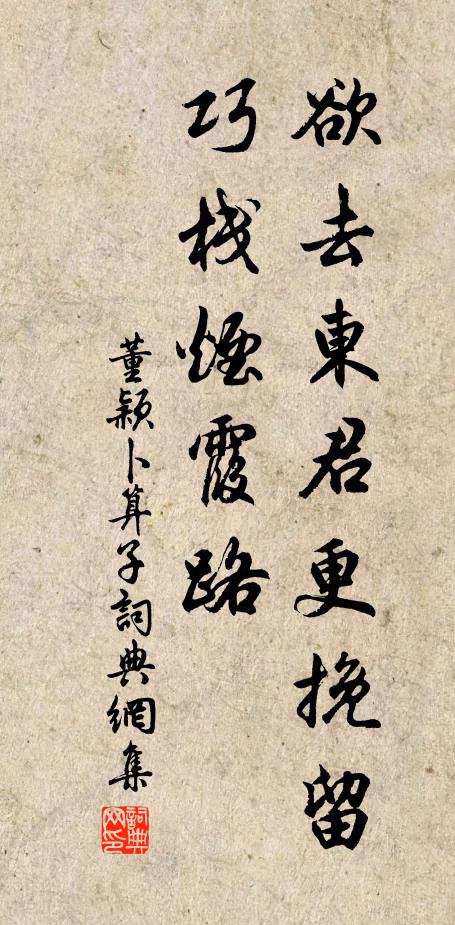 欲去東君更挽留
巧棧煙霞路
董穎卜算子詞典網集
詞典网印